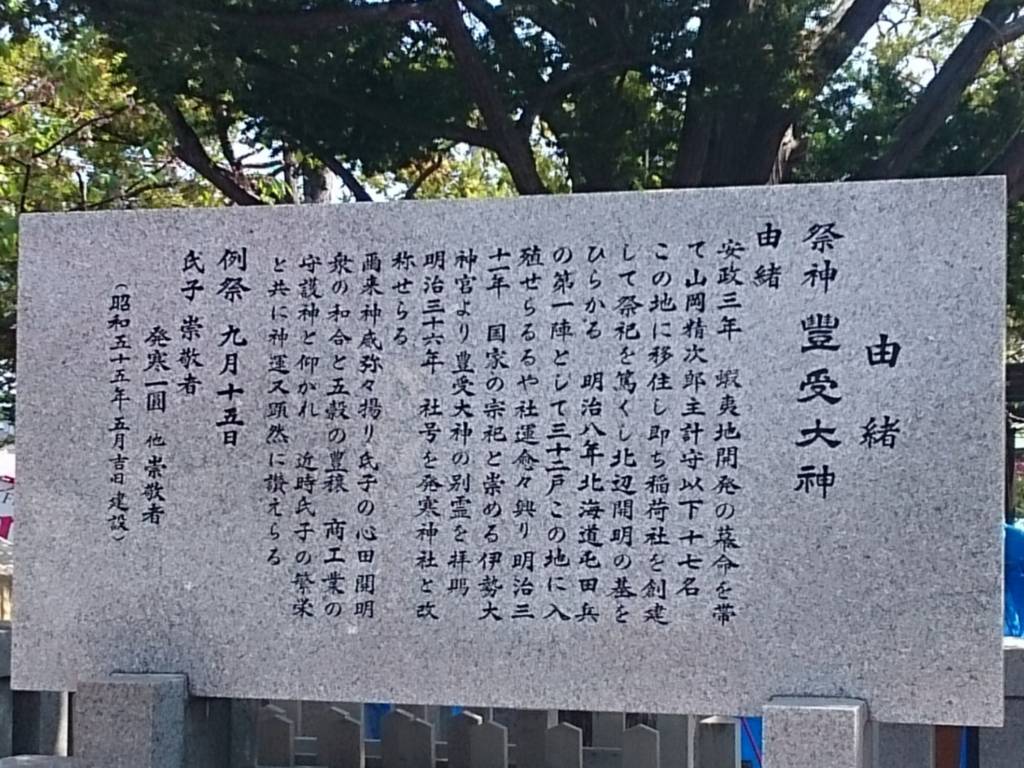 由緒
祭神 豐受大神
由緒
安政三年 蝦夷地開発の幕命を帯
て山岡精次郎主計守以下十七名
この地に移住し即ち稲荷社を創建
して祭祀を篤くし北辺開明の基を
ひらかる 明治八年北海道屯田兵
の第一陣として三十二戸この地に入
殖せらるるや社運愈々興り明治三
十一年 国家の宗祀と崇める伊勢大
神宮より豊受大神の別霊を拝賜
明治三十六年 社号を発寒神社と改
称せらる
爾来神威弥々揚り氏子の心田開明
衆の和合と五穀の豊穣 商工業の
守護神と仰がれ 近時氏子の繁栄
と共に神運又顕然に讃えらる
例祭 九月十五日
氏子 崇敬者
発寒一圓 他崇敬者
(昭和五十五年五月吉日建設)